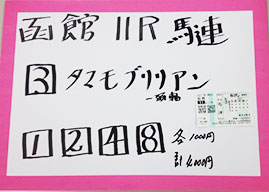 函館11R 馬連
3 タマモブリリアン
1 2 4 8 各1000円
計4,000円